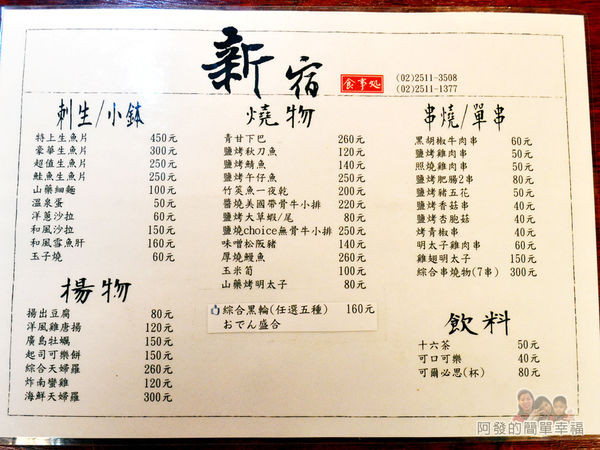 新宿 食事処
(02)2511-3508
(02)2511-1377
刺生/小鉢
特上生魚片 450元
豪華生魚片 300元
超值生魚片 250元
鮭魚生魚片 250元
山藥細麵 100元
溫泉蛋 50元
洋蔥沙拉 60元
和風沙拉 150元
和風雪魚肝 160元
玉子燒 60元
揚物
揚出豆腐 80元
洋風雞唐揚 120元
廣島牡蠣 150元
起司可樂餅 150元
綜合天婦羅 260元
炸南蠻雞 120元
海鮮天婦羅 300元
燒物
青甘下巴 260元
鹽烤秋刀魚 120元
鹽烤鯖魚 140元
鹽烤午仔魚 250元
竹筴魚一夜乾 200元
醬燒美國帶骨牛小排 220元
鹽烤大草蝦/尾 80元
鹽燒choice無骨牛小排 250元
味噌松阪豬 140元
厚燒鰻魚 260元
玉米筍 100元
山藥烤明太子 80元
綜合黑輪(任選五種) 160元
おでん盛合
串燒/單串
黑胡椒牛肉串 60元
鹽烤雞肉串 50元
照燒雞肉串 50元
鹽烤肥腸2串 80元
鹽烤豬五花 50元
鹽烤香菇串 40元
鹽烤杏鮑菇 40元
烤青椒串 40元
明太子雞肉串 60元
雞翅明太子 150元
綜合串燒物(7串) 300元
飲料
十六茶 50元
可口可樂 40元
可爾必思(杯) 80元
阿發的簡單幸福